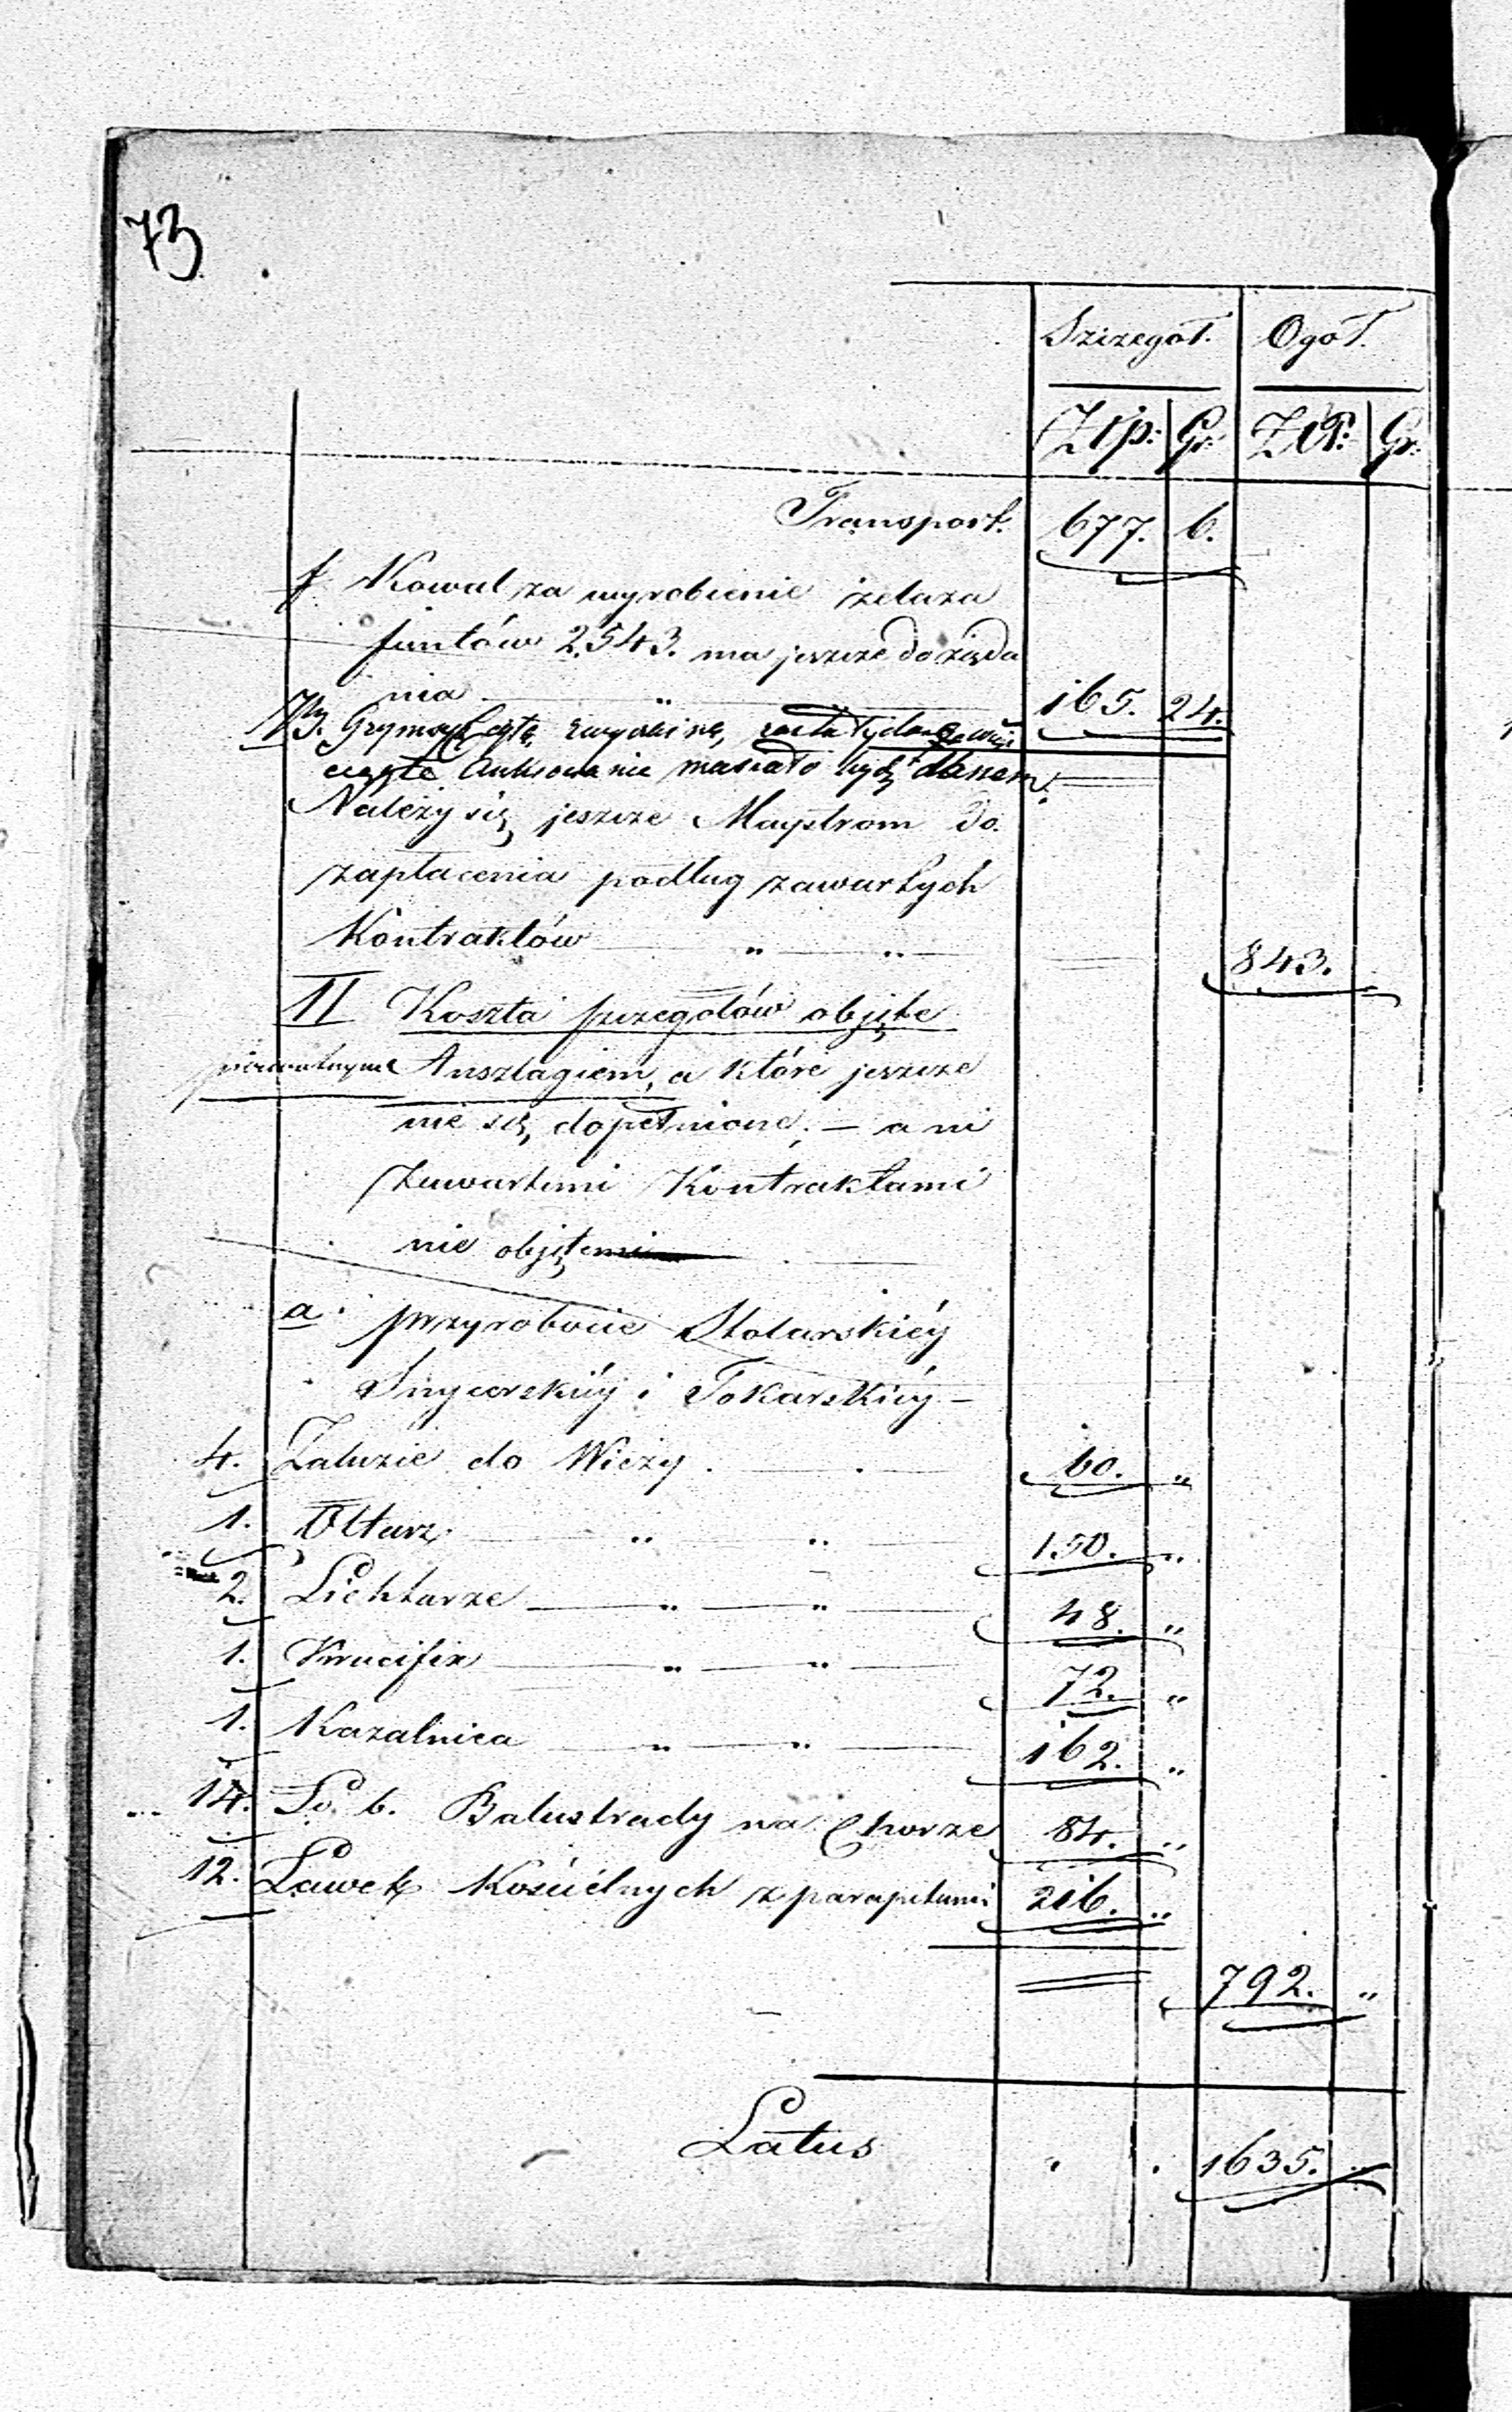 73
Szczegoł. Ogoł.
Złp: Gr: Złp: Gr:
Transport. 677. 6.
f Kowal za wyrobienie żelaza
funtów 2.543. ma jeszcze do żąda
nia „ 165. 24.
musiało bydź danem.
Należy się jeszcze Maystrom do
zapłacenia podług zawartych
Kontraktów „ „ 843.
II Koszta szczegołów objęte
pierwotnym Anszlagiem, a które jeszcze
nie są dopełnione; – ani
zawartemi Kontraktami
nie objęte
a. przy robocie Stolarskiéy
Snycerskiéy i Tokarskiéy –
4. Żaluzie do Wieży 60. „
1. Ołtarz „ „ 150. „
2. Lichtarze „ „ 48. „
1. Krucifix „ „ 72. „
1. Kazalnica „ „ 162. „
14. Ło. b. Balustrady na Chorze 84. „
12. Ławek Kościelnych z parapetami 216. „
792. „
Latus „ „ 1635. „